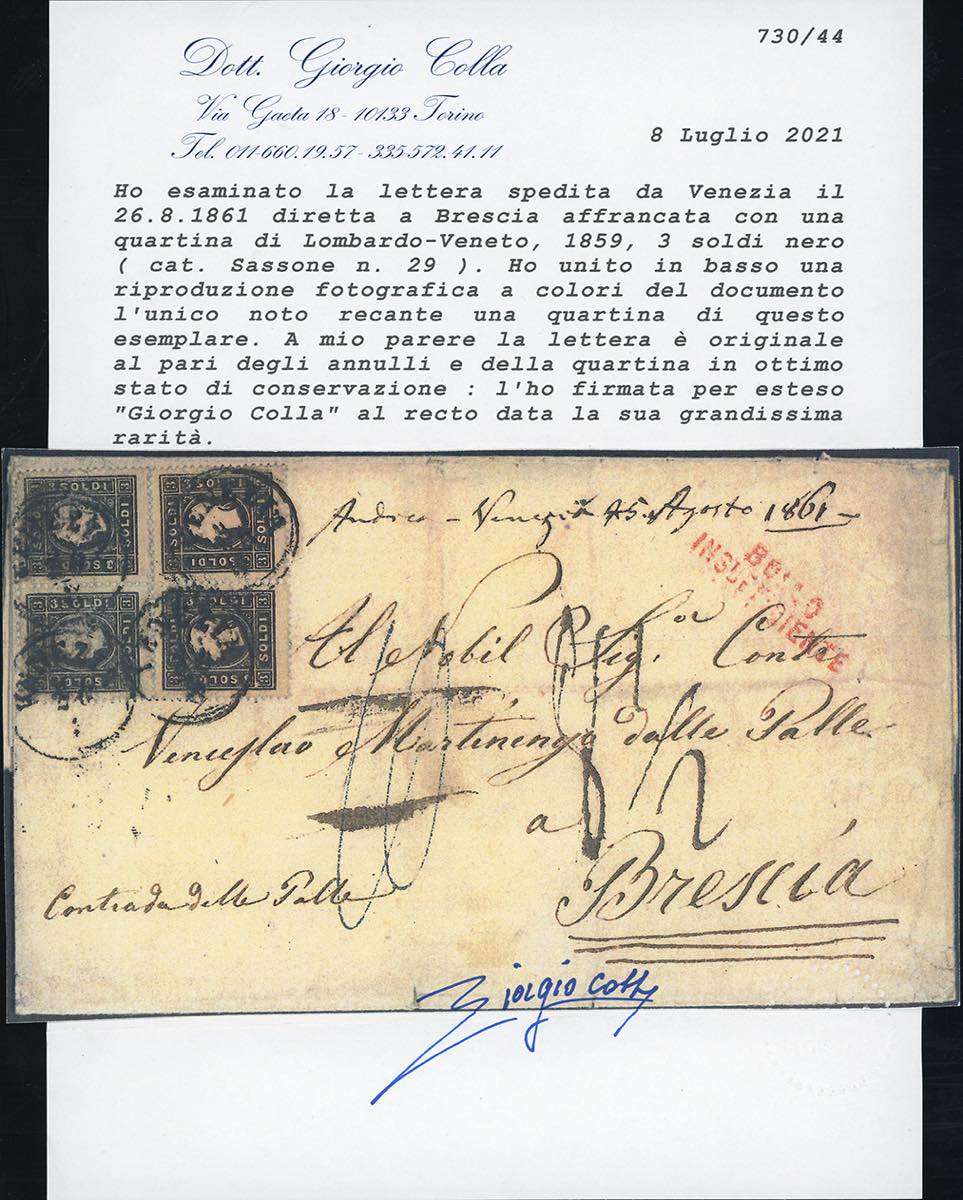 730/44
Dott. Giorgio Colla
Via Gaeta 18 - 10133 Torino
Tel. 011-660.19.57 - 335-572.41.11
8 Luglio 2021
Ho esaminato la lettera spedita da Venezia il
26.8.1861 diretta a Brescia affrancata con una
quartina di Lombardo-Veneto, 1859, 3 soldi nero
( cat. Sassone n. 29 ). Ho unito in basso una
riproduzione fotografica a colori del documento
l'unico noto recante una quartina di questo
esemplare. A mio parere la lettera è originale
al pari degli annulli e della quartina in ottimo
stato di conservazione : l'ho firmata per esteso
"Giorgio Colla" al recto data la sua grandissima
rarità.
3 SOLDI 3
SOLDI
SOLDI
3 SOLDI 3
SOLDI
SOLDI
Venezia 25 Agosto 1861
BOLLO
INSUFFICIENTE
Al Nobil Sig.r Conte
Venceslao Martinengo dalle Palle
a
Brescia
Contrada delle Palle
Giorgio Colla